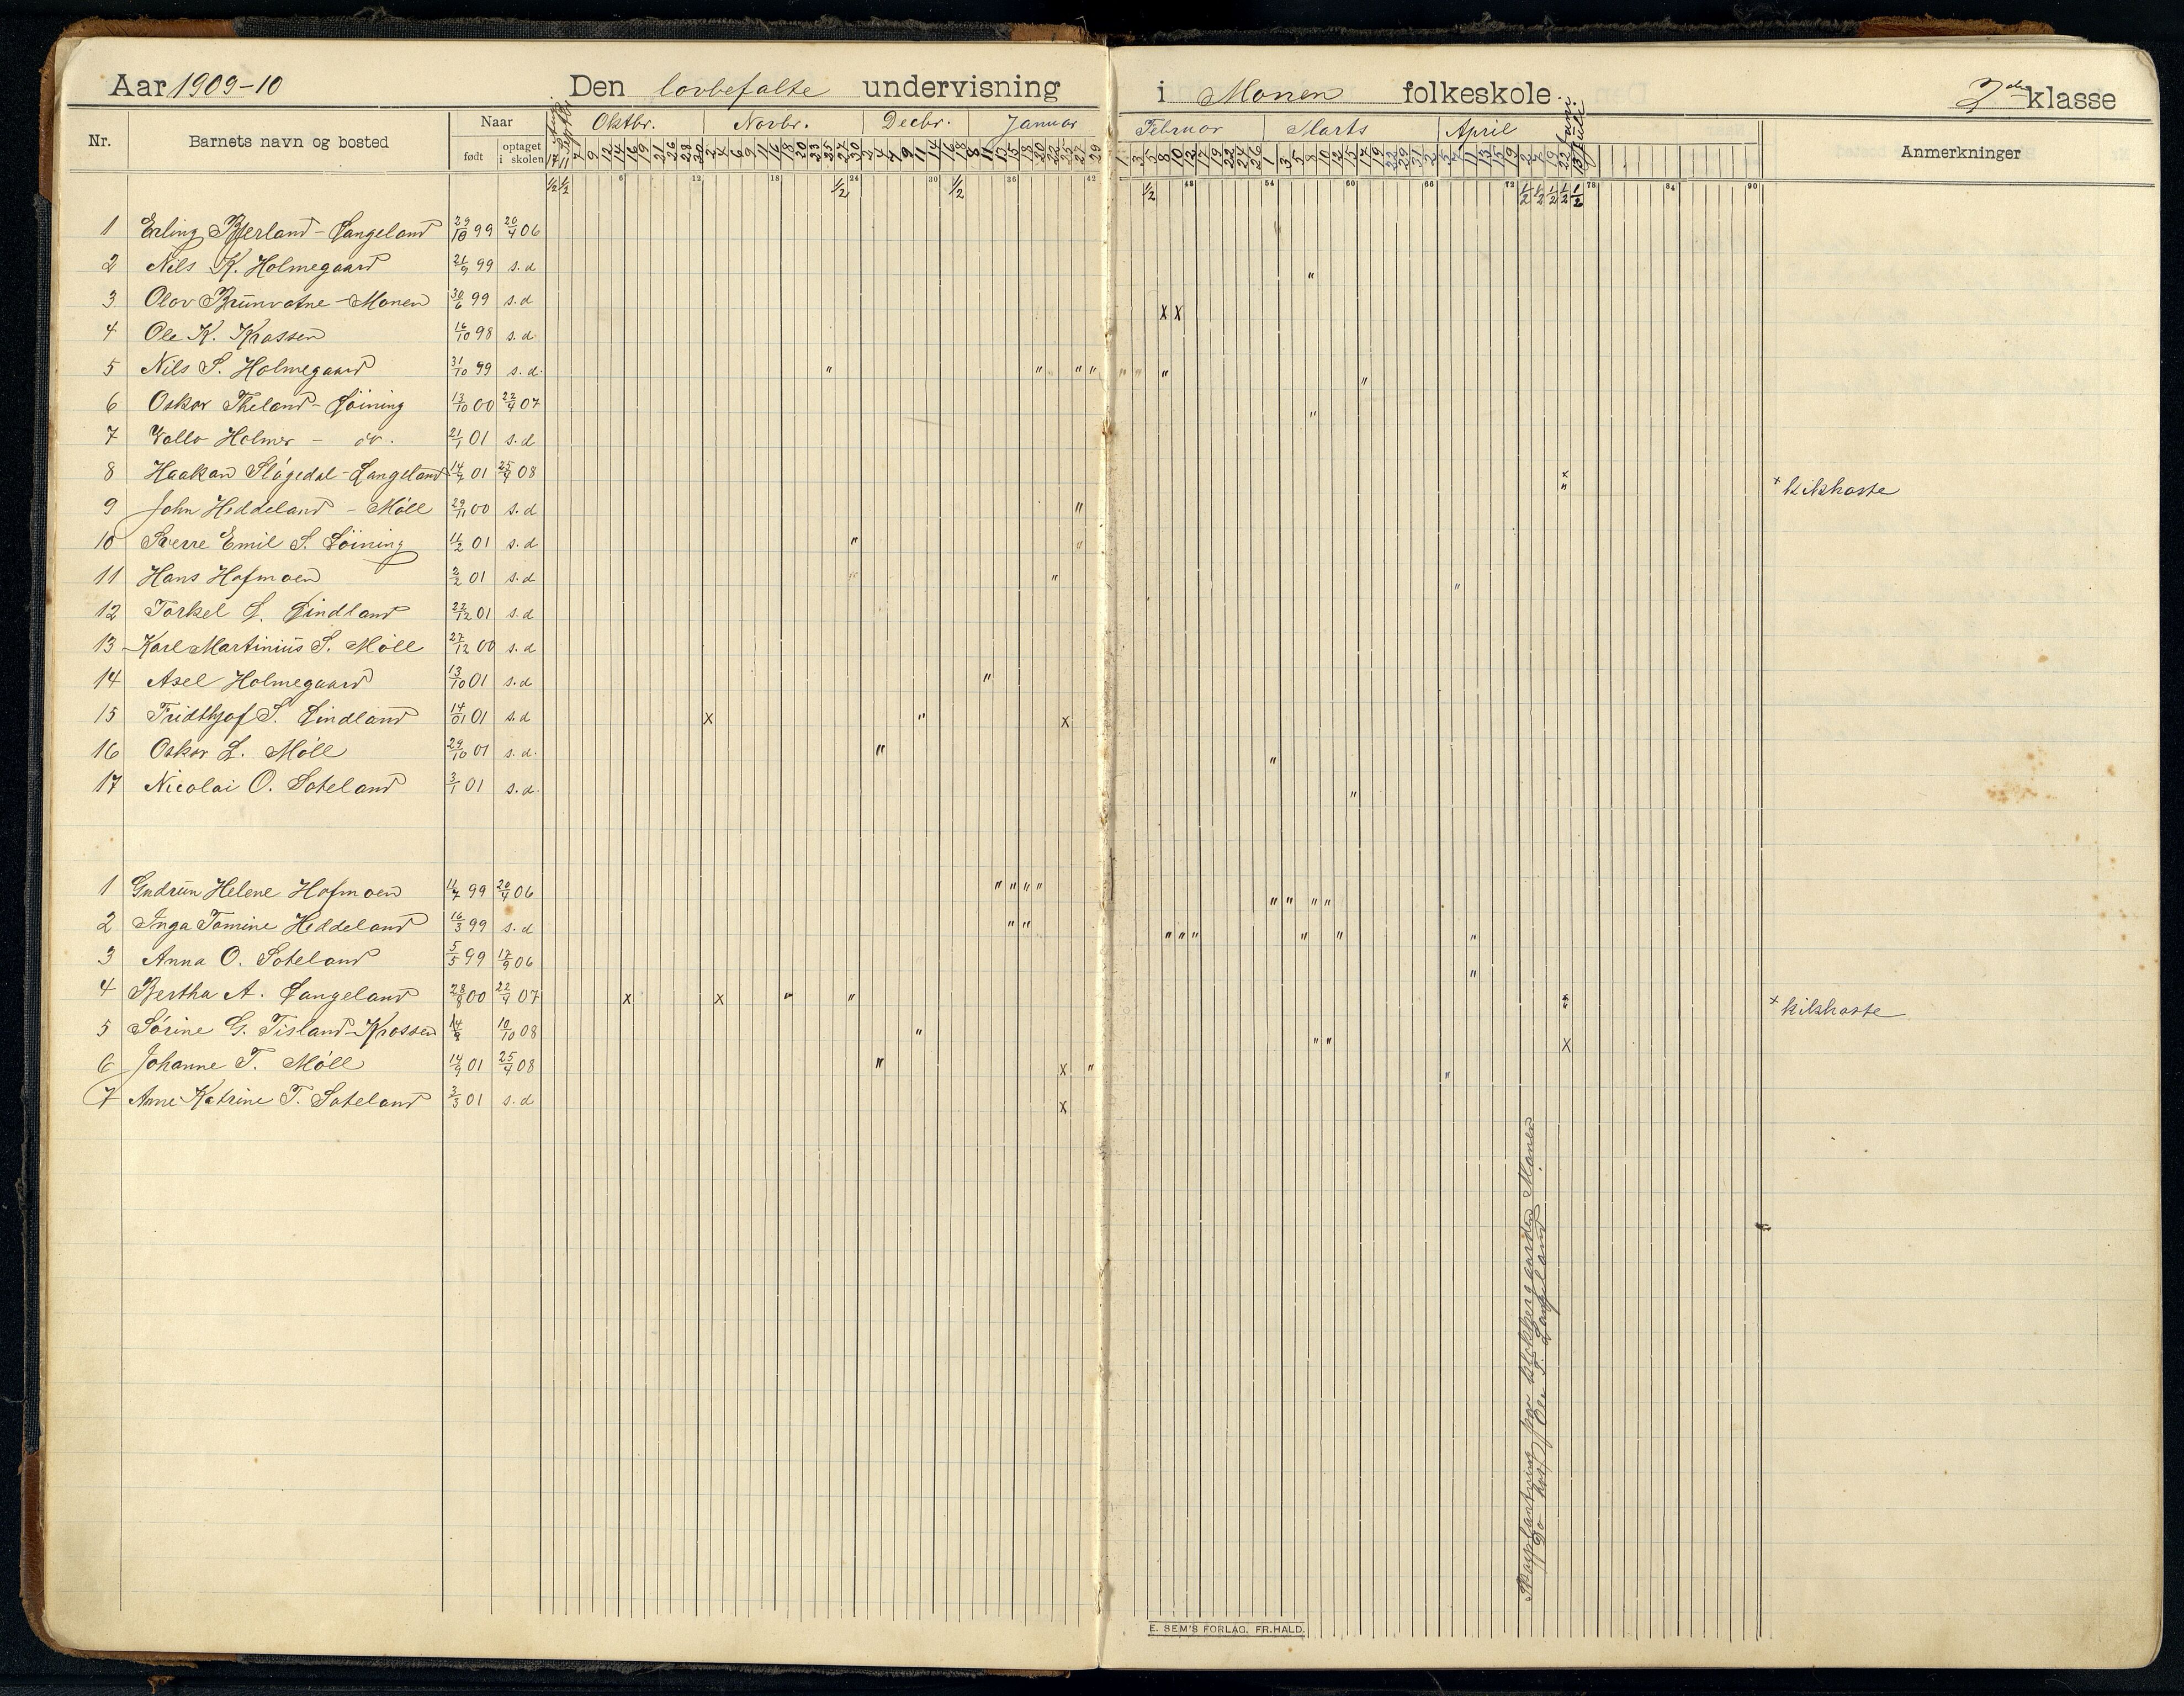 Aar 1909-10 Den lovbefalte undervisning i Monen folkeskole. 2den klasse
Nr. Barnets navn og bosted Naar født optaget i skolen Oktbr. Novbr. Decbr. Januar Februar Marts April Anmerkninger
6 12 18 24 30 36 42 48 54 60 66 72 78 84 90
1 Erling Bjerland - Langeland 29/10 99 20/4 06
2 Nils K. Holmegaard 21/9 99 s.d
3 Olav Brünvatne - Monen 30/6 99 s.d
4 Ole K. Krossen 16/10 98 s.d.
5 Nils S. Holmegaard 31/10 99 s.d.
6 Oskar Theland - Löining 13/10 00 22/4 07
7 Valle Holmer - do. 21/1 01 s.d
8 Haakan Slögedal - Langeland 14/7 01 25/4 08 x kikhoste
9 John Heddeland - Möll 29/11 00 s.d
10 Sverre Emil S. Löining 11/2 01 s.d
11 Hans Hofmoen 2/2 01 s.d
12 Torkel L. Lindland 22/12 01 s.d
13 Karl Martinius S. Möll 27/12 00 s.d
14 Axel Holmegaard 13/10 01 s.d
15 Fridthjof S. Lindland 14/01 01 s.d
16 Oskar L. Möll 29/10 01 s.d.
17 Nicolai O. Soteland 3/1 01 s.d.
1 Gudrün Helene Hofmoen 11/7 99 20/4 06
2 Inga Tomine Heddeland 16/3 99 s.d
3 Anna O. Soteland 5/5 99 17/9 06
4 Bertha A. Langeland 28/8 00 22/4 07 x kikhoste
5 Sörine G. Tisland - Krossen 14/8 10/10 08
6 Johanne T. Möll 14/9 01 25/4 08
7 Anne Katrine T. Soteland 3/3 01 s.d
Skogplantning paa klokkergaarden Monen
do hos Ole T. Langeland
E. SEM'S FORLAG, FR.HALD.